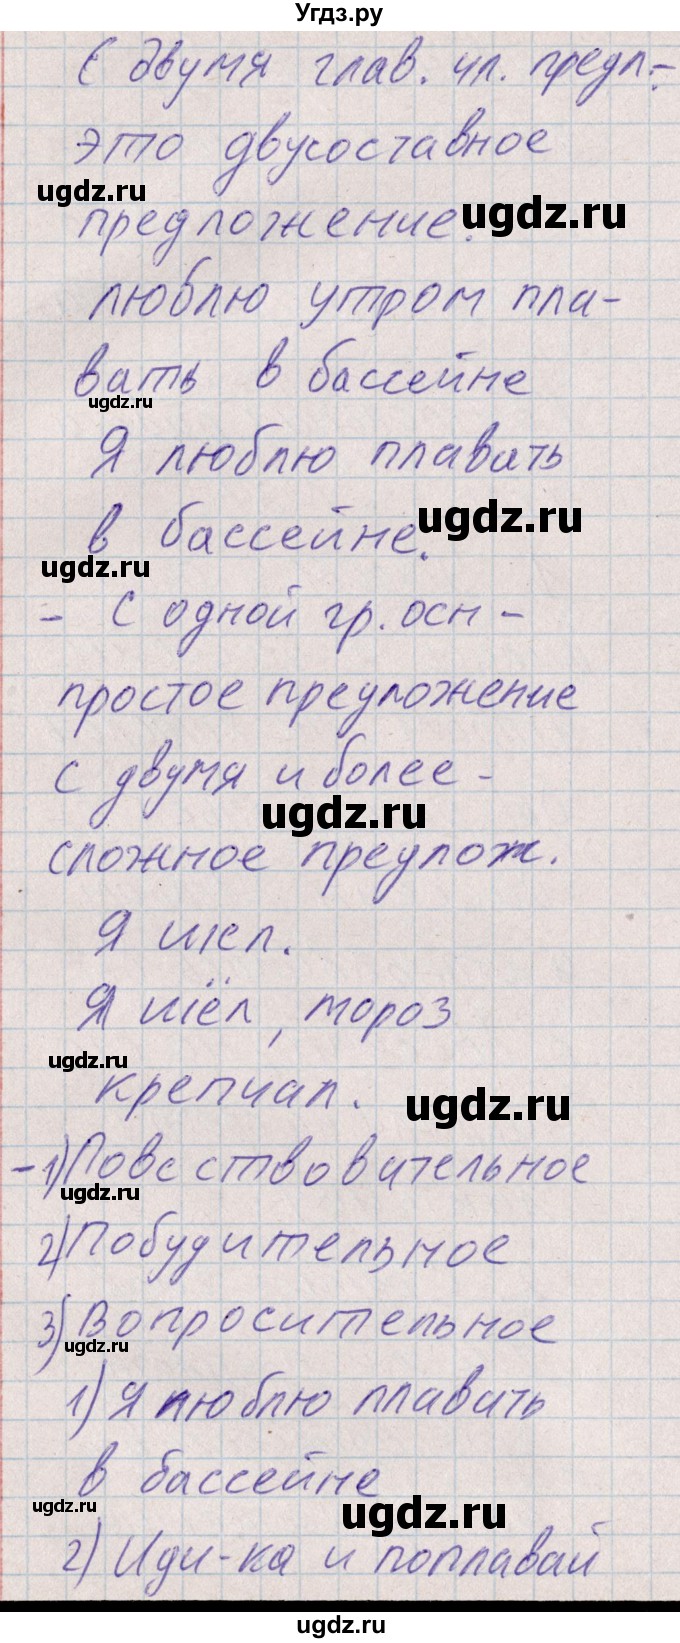 Угдз.ру
С двумя глав. чл. предл.-
это двусоставное
ugdz.ru
предложение.
ugdz.ru
люблю утром пла-
вать в бассейне
ugdz.ru
Я люблю плавать
ugdz.ru
в бассейне.
ugdz.ru
- С одной гр. осн -
простое предложение
с двумя и более -
ugdz.ru
сложное предлож.
Я шел.
Я шёл, мороз
ugdz.ru
крепчал.
ugdz.ru
- 1) Повествовательное
ugdz.ru
2) Побудительное
3) Вопросительное
ugdz.ru
1) Я люблю плавать
в бассейне
ugdz.ru
ugdz.ru
2) Иди-ка и поплавай
ugdz.ru